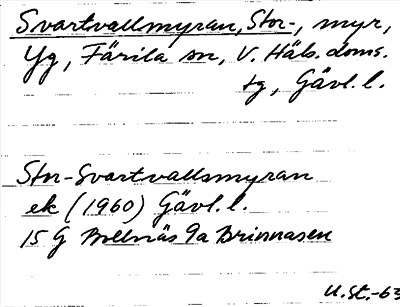 Svartvallmyran, Stor-, myr,
Yg, Färila sn, V. Häls. doms.
tg, Gävl. l.
Stor-Svartvallsmyran
ek (1960) Gävl. l.
15 G Bollnäs 9a Brinnasen
U.St.-63